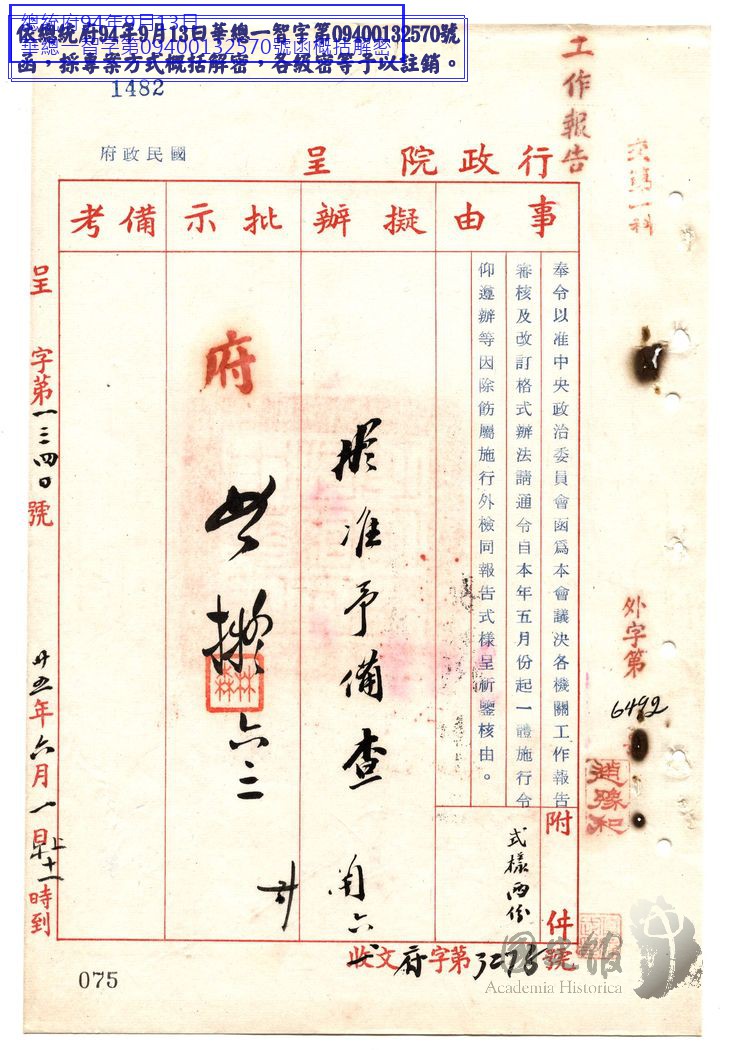 總統府94年9月13日
華總一智字第09400132570號函概括解密
依總統府94年9月13日華總一智字第09400132570號
函，採專案方式概括解密，各級密等予以註銷。
1482
工作報告
國民政府
行政院 呈
事由
擬辦
批示
備考
奉令以准中央政治委員會函爲本會議決各機關工作報告
審核及改訂格式辦法請通令自本年五月份起一體施行令
仰遵辦等因除飭屬施行外檢同報告式樣呈祈鑒核由。
附件
式樣兩份
擬准予備查
府
如擬
林森
六三
呈 字第一三四〇號
廿五年六月一日上午十一時到
外字第
6492
趙豫和
收文府字第3275號
075
國史館
Academia Historica